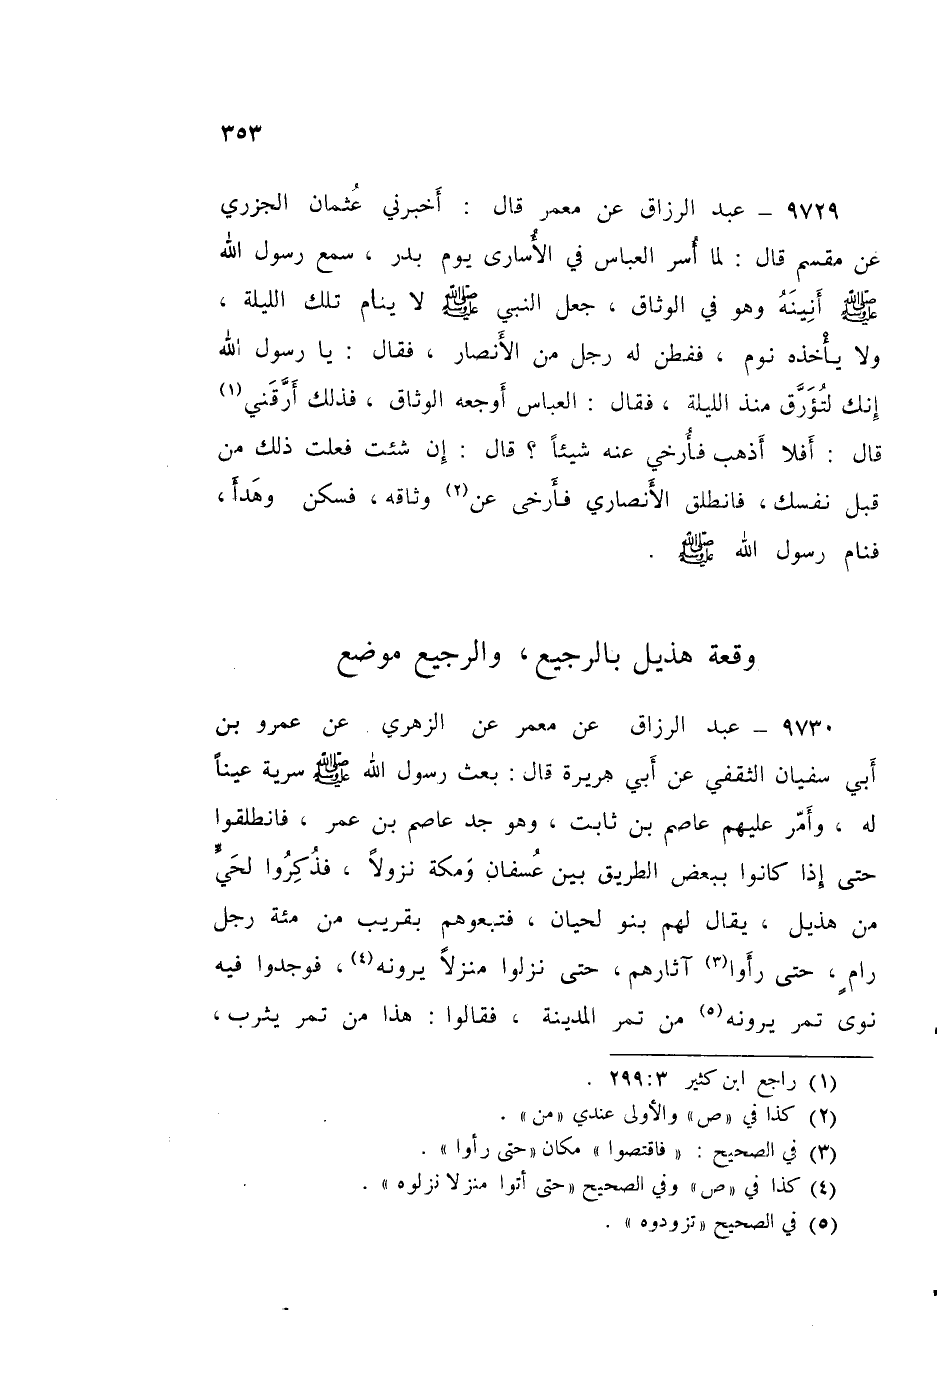 ٣٥٣
٩٧٢٩ – عبد الرزاق عن معمر قال : أَخبرني عُثمان الجزري
عن مقسم قال : لما أُسر العباس في الأُسارى يوم بدر ، سمع رسول الله
ﷺ أَنِينَهُ وهو في الوثاق ، جعل النبي ﷺ لا ينام تلك الليلة ،
ولا يأْخذه نوم ، ففطن له رجل من الأَنصار ، فقال : يا رسول الله
إنك لتُؤرَّق منذ الليلة ، فقال : العباس أَوجعه الوثاق ، فذلك أَرَّقَني(١)
قال : أَفلا أَذهب فأُرخي عنه شيئاً ؟ قال : إن شئت فعلت ذلك من
قبل نفسك ، فانطلق الأَنصاري فأَرخى عن(٢) وثاقه ، فسكن وهَدأَ ،
فنام رسول الله ﷺ .
وقعة هذيل بالرجيع ، والرجيع موضع
٩٧٣٠ – عبد الرزاق عن معمر عن الزهري عن عمرو بن
أَبي سفيان الثقفي عن أَبي هريرة قال : بعث رسول الله ﷺ سرية عيناً
له ، وأَمّر عليهم عاصم بن ثابت ، وهو جد عاصم بن عمر ، فانطلقوا
حتى إِذا كانوا ببعض الطريق بين عُسفان وَمكة نزولاً ، فذُكِرُوا لحَيٍّ
من هذيل ، يقال لهم بنو لحيان ، فتبعوهم بقريب من مئة رجل
رامٍ ، حتى رأَوا(٣) آثارهم ، حتى نزلوا منزلاً يرونه(٤) ، فوجدوا فيه
نوى تمر يرونه(٥) من تمر المدينة ، فقالوا : هذا من تمر يثرب ،
(١) راجع ابن كثير ٣:٢٩٩ .
(٢) كذا في «ص» والأولى عندي «من» .
(٣) في الصحيح : « فاقتصوا » مكان «حتى رأوا » .
(٤) كذا في «ص» وفي الصحيح «حتى أتوا منزلا نزلوه » .
(٥) في الصحيح «تزودوه » .